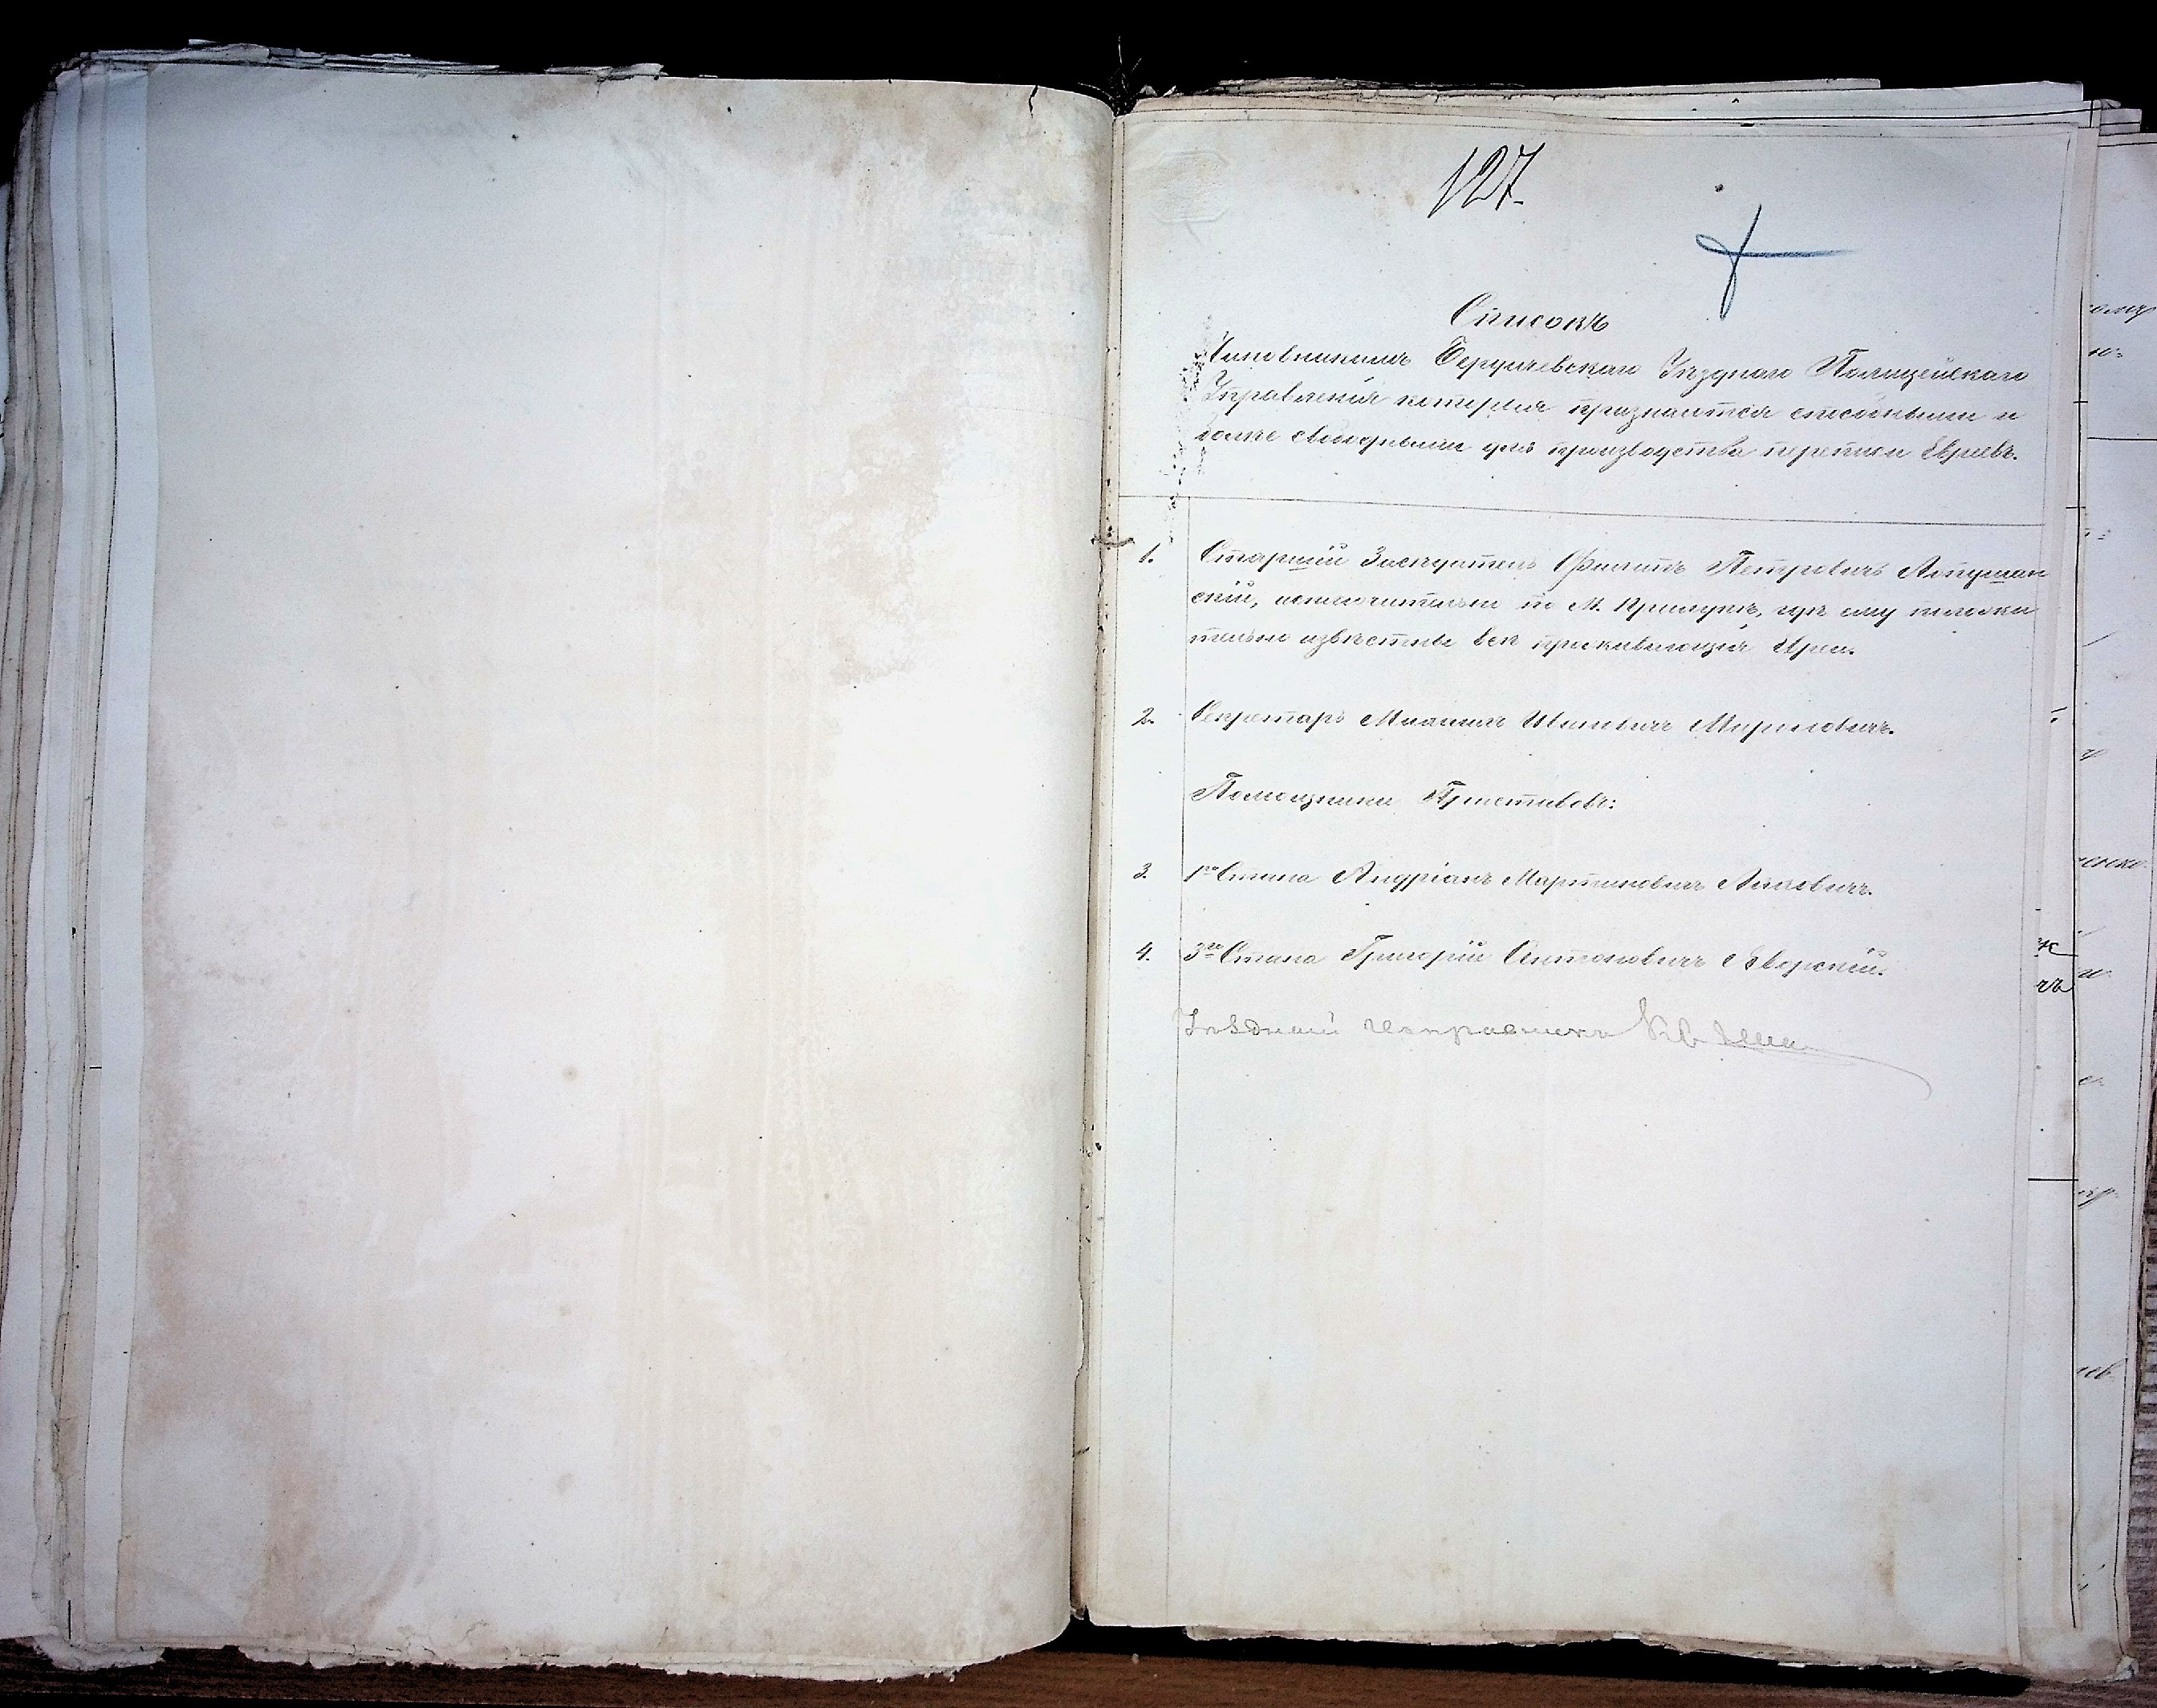 127.
Списокъ
Чиновникамъ Бердичевскаго Уѣзднаго Полицейскаго
Управленія которыя признаются способными и
более свободными для производства переписи Евреевъ.
1. Старшій Заседатель Филипъ Петровичъ Лопушан
скій, исключительно по М. Прилукѣ, гдѣ ему положи
тельно извѣстны всѣ проживающія Евреи.
2. Секретарь Михаилъ Ивановичъ
Помощники Приставовъ:
3. 1го Стана Андріанъ Мартиновичъ
4. 3го Стана Григорій Антоновичъ
Уѣздный Исправникъ